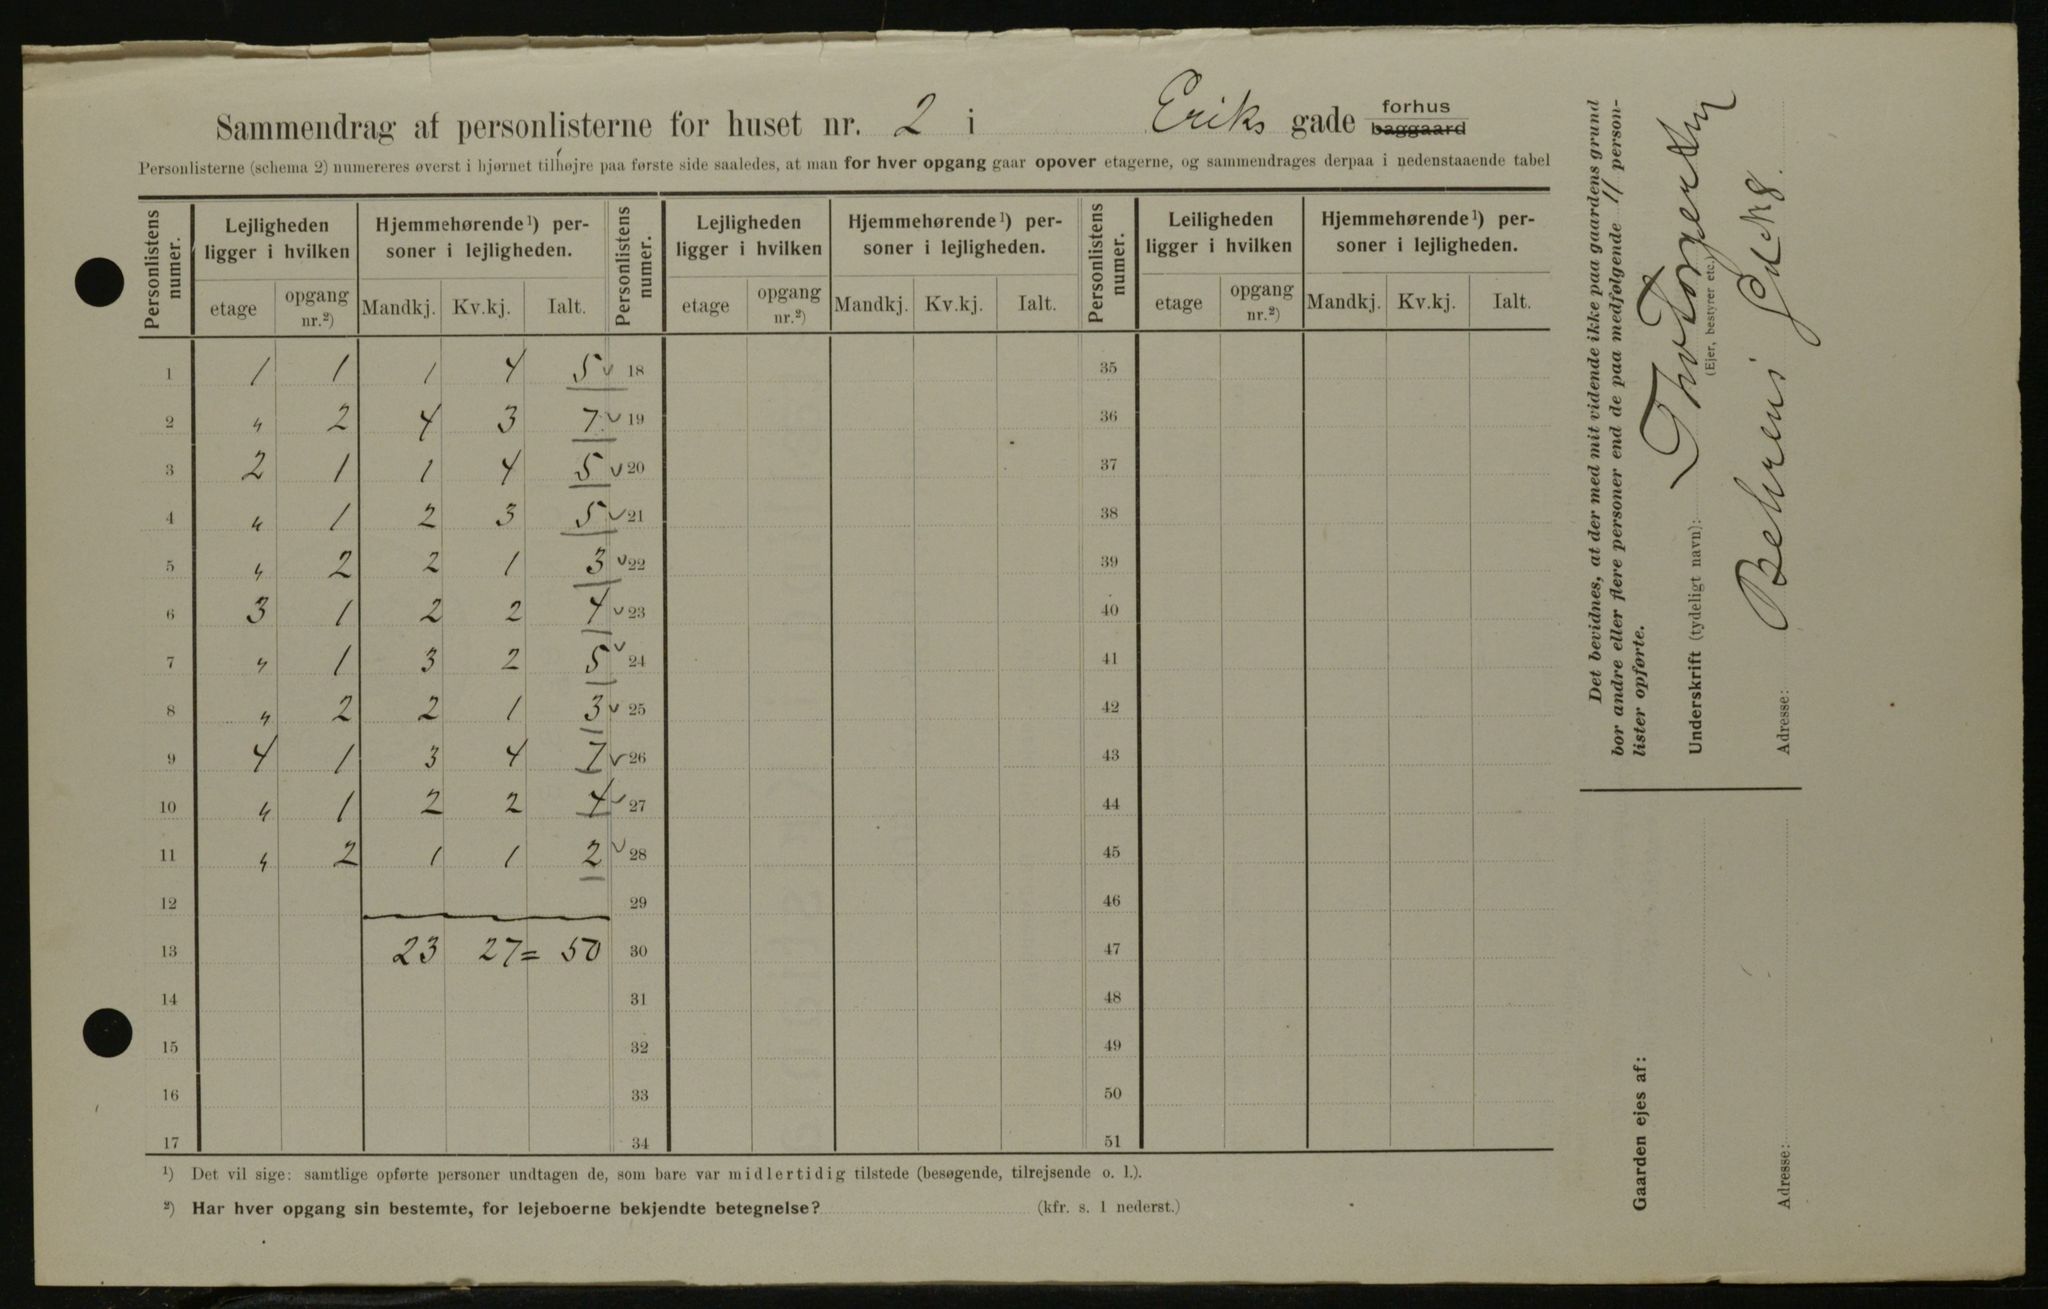 Sammendrag af personlisterne for huset nr. 2 i Eriks gade forhus baggaard
Personlisterne (schema 2) numereres øverst i hjørnet tilhøjre paa første side saaledes, at man for hver opgang gaar opover etagerne, og sammendrages derpaa i nedenstaaende tabel
Personlistens numer. Lejligheden ligger i hvilken Hjemmehørende ¹) personer i lejligheden. Personlistens numer. Lejligheden ligger i hvilken Hjemmehørende ¹) personer i lejligheden. Personlistens numer. Leiligheden ligger i hvilken Hjemmehørende ¹) personer i lejligheden.
etage opgang nr.²) Mandkj. Kv.kj. Ialt. etage opgang nr.²) Mandkj. Kv.kj. Ialt. etage opgang nr.²) Mandkj. Kv.kj. Ialt.
1 1 1 1 4 5 18 35
2 " 2 4 3 7 19 36
3 2 1 1 4 5 20 37
4 " 1 2 3 5 21 38
5 " 2 2 1 3 22 39
6 3 1 2 2 4 23 40
7 " 1 3 2 5 24 41
8 " 2 2 1 3 25 42
9 4 1 3 4 7 26 43
10 " 1 2 2 4 27 44
11 " 2 1 1 2 28 45
12 29 46
13 23 27 = 50 30 47
14 31 48
15 32 49
16 33 50
17 34 51
¹) Det vil sige: samtlige opførte personer undtagen de, som bare var midlertidig tilstede (besøgende, tilrejsende o. l.).
²) Har hver opgang sin bestemte, for lejeboerne bekjendte betegnelse? (kfr. s. 1 nederst.)
Det bevidnes, at der med mit vidende ikke paa gaardens grund
bor andre eller flere personer end de paa medfølgende 11 person-
lister opførte.
Underskrift (tydeligt navn):
(Ejer, bestyrer etc.)
Adresse: Behrens Gd № 8.
Gaarden ejes af:
Adresse: